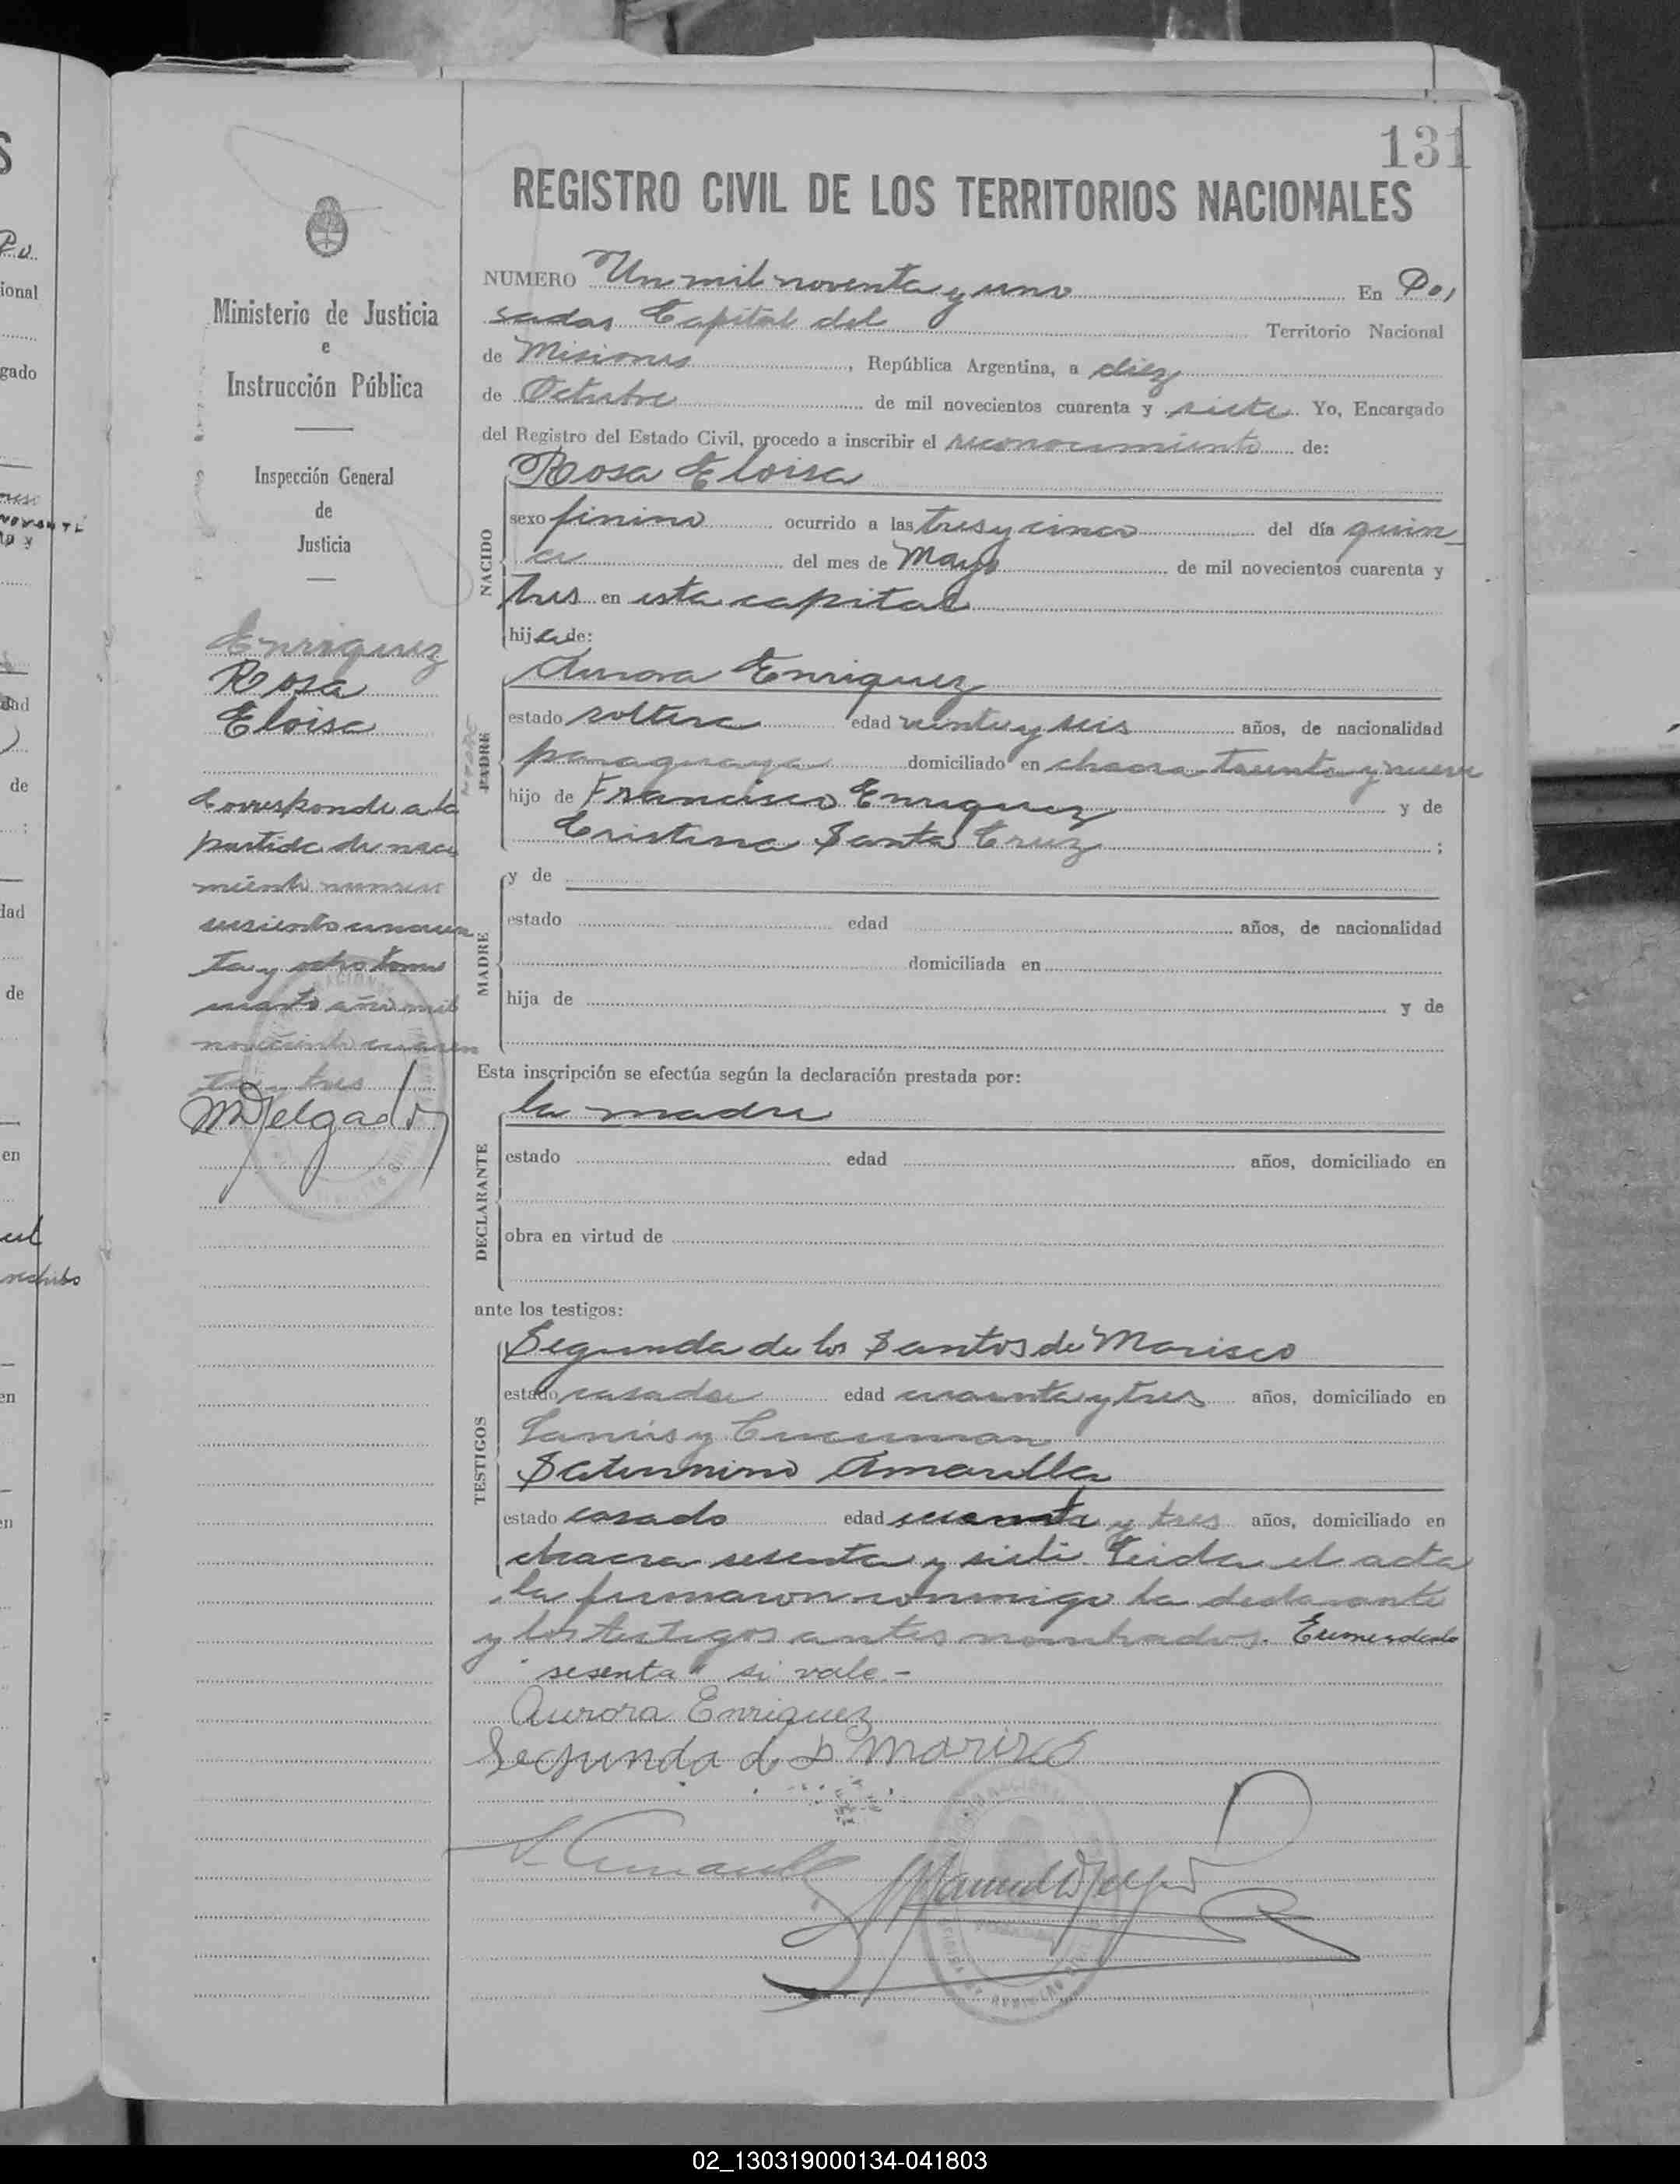 131
REGISTRO CIVIL DE LOS TERRITORIOS NACIONALES
Ministerio de Justicia
e
Instrucción Pública
Inspección General
de
Justicia
Enriquez
Rosa
Eloisa
Corresponde a la
partida de naci
miento numero
seisciento cincuen
ta y ocho tomo
cuarto año mil
noveciento cuaren
ta y tres
MDelgado
NUMERO Un mil noventa y uno En Po,
sadas Capital del Territorio Nacional
de Misiones, República Argentina, a diez
de Octubre de mil novecientos cuarenta y siete Yo, Encargado
del Registro del Estado Civil, procedo a inscribir el reconocimiento de:
NACIDO
Rosa Eloisa
sexo finino ocurrido a las tres y cinco del día quin_
ce del mes de Mayo de mil novecientos cuarenta y
tres en esta capital
hija de:
PADRE
MADRE
Aurora Enriquez
estado soltera edad veinte y seis años, de nacionalidad
paraguaya domiciliado en chacra treinta y nueve
hijo de Francisco Enriquez y de
Cristina Santa Cruz ;
MADRE
y de
estado edad años, de nacionalidad
domiciliada en
hija de y de
Esta inscripción se efectúa según la declaración prestada por:
DECLARANTE
la madre
estado edad años, domiciliado en
obra en virtud de
ante los testigos:
TESTIGOS
Segunda de los Santos de Marisco
estado casada edad cuarenta y tres años, domiciliado en
Lanus y Tucuman
Saturnino Amarilla
estado casado edad cuarenta y tres años, domiciliado en
chacra sesenta y siete. Leida el acta
la firmaron conmigo la declarante
y los testigos antes nombrados. Enmendado
"sesenta" si vale.-
Aurora Enriquez
Segunda d S Marisco
S. Amarilla
Manuel Delgado
02_130319000134-041803